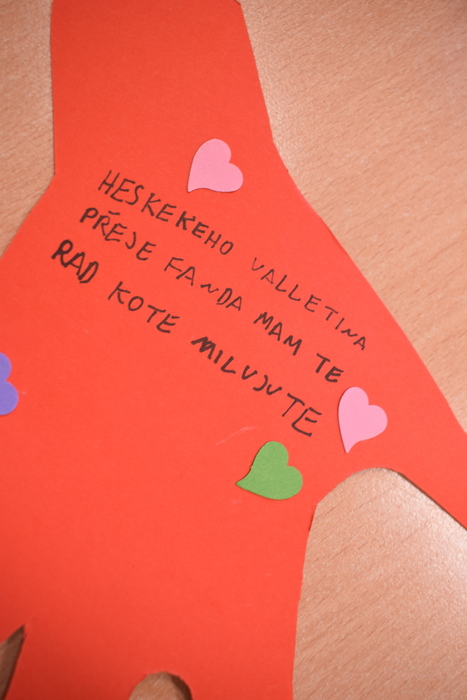 HESKEKEHO VALLETINA
PŘEJE FANDA MAM TE
RAD KOTE MILUJU TE